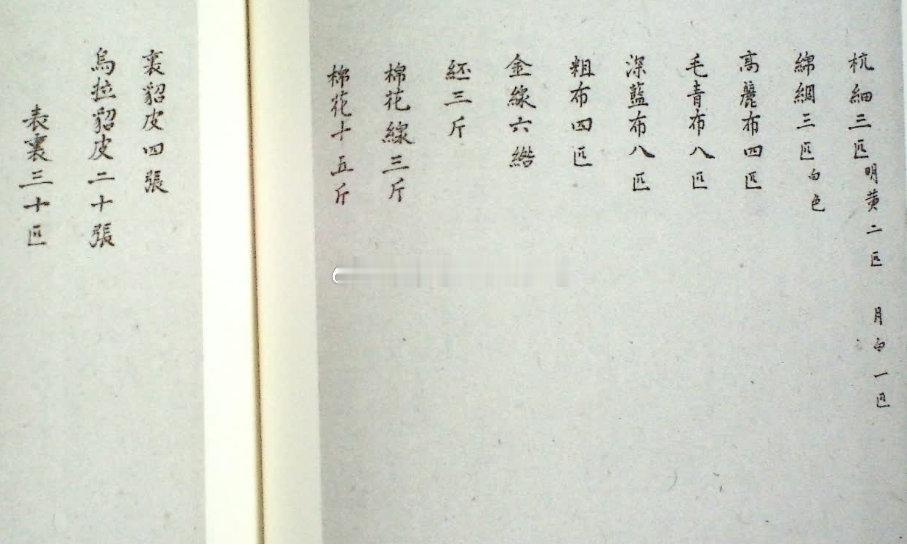 杭細三匹明黄二匹 月白一匹
綿綢三匹白色
高麗布四匹
毛青布八匹
深藍布八匹
粗布四匹
金線六綹
絍三斤
棉花線三斤
棉花十五斤
裏貂皮四張
烏拉貂皮二十張
表裏三十匹